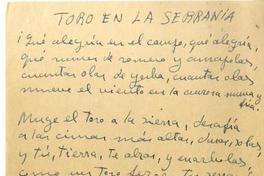 TORO EN LA SERRANÍA
¡Qué alegría en el campo, qué alegría,
qué rumor de romero y amapolas,
cuántas olas de yerba, cuántas olas
mueve el viento en la aurora nueva y
fría!
Muge el toro a la sierra, desafía
a las cimas más altas, duras, solas,
y tú, tierra, te alzas, y enarbolas
como un toro